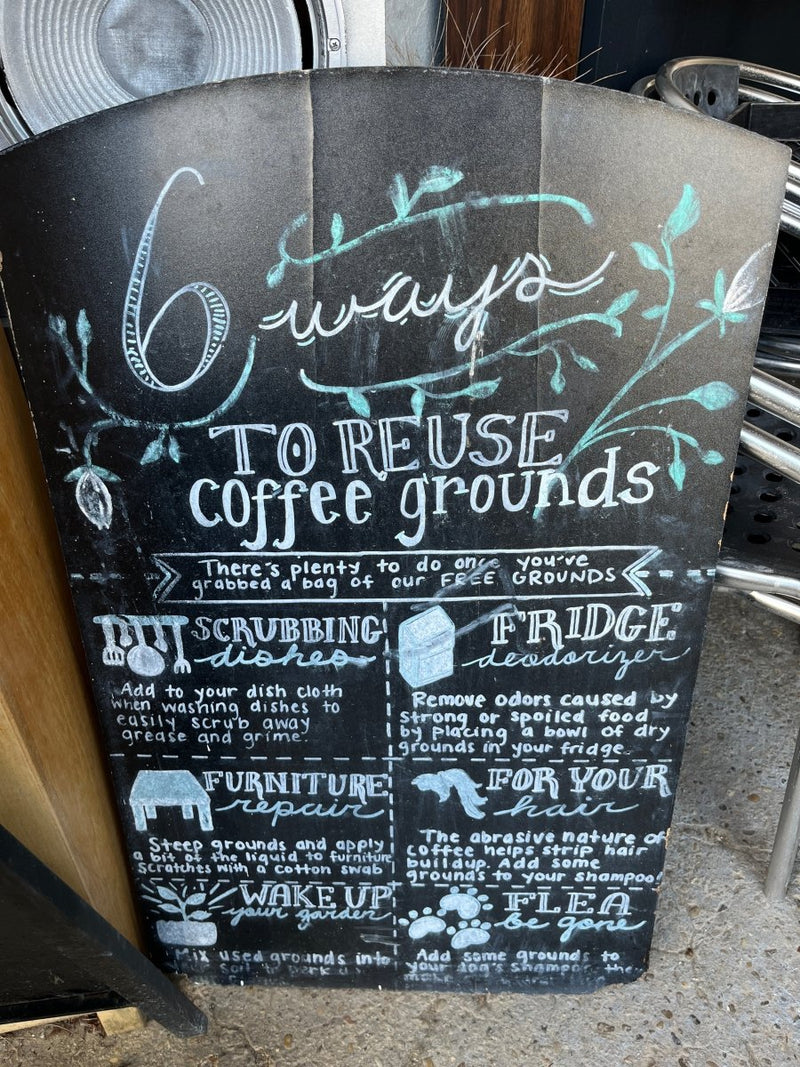 6 ways
TO REUSE
coffee grounds
There's plenty to do once you've
grabbed a bag of our FREE GROUNDS
SCRUBBING
dishes
Add to your dish cloth
when washing dishes to
easily scrub away
grease and grime.
FRIDGE
deodorizer
Remove odors caused by
strong or spoiled food
by placing a bowl of dry
grounds in your fridge.
FURNITURE
repair
Steep grounds and apply
a bit of the liquid to furniture
scratches with a cotton swab
FOR YOUR
hair
The abrasive nature of
coffee helps strip hair
buildup. Add some
grounds to your shampoo!
WAKE UP
your garden
Mix used grounds into
soil to perk
FLEA
be gone
Add some grounds to
your dog's shampoo, then
make